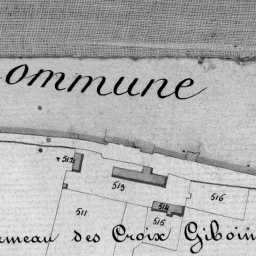 ommune
512
513
514
516
511
515
ameau des Croix Giboin